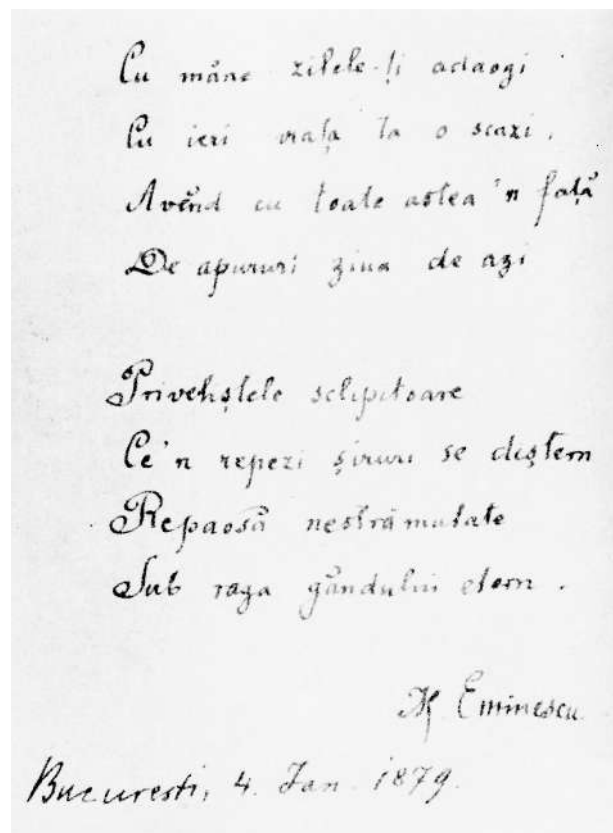 Cu mâne zilele-ți adaogi
Cu ieri viața ta o scazi,
Avênd cu toate astea 'n față
De apururi ziua de azi
Priveliștele sclipitoare
Ce 'n repezi șiruri se diștern
Repaosă nestrămutate
Sub raza gândului etern.
M Eminescu
Bucuresti, 4. Jan. 1879.